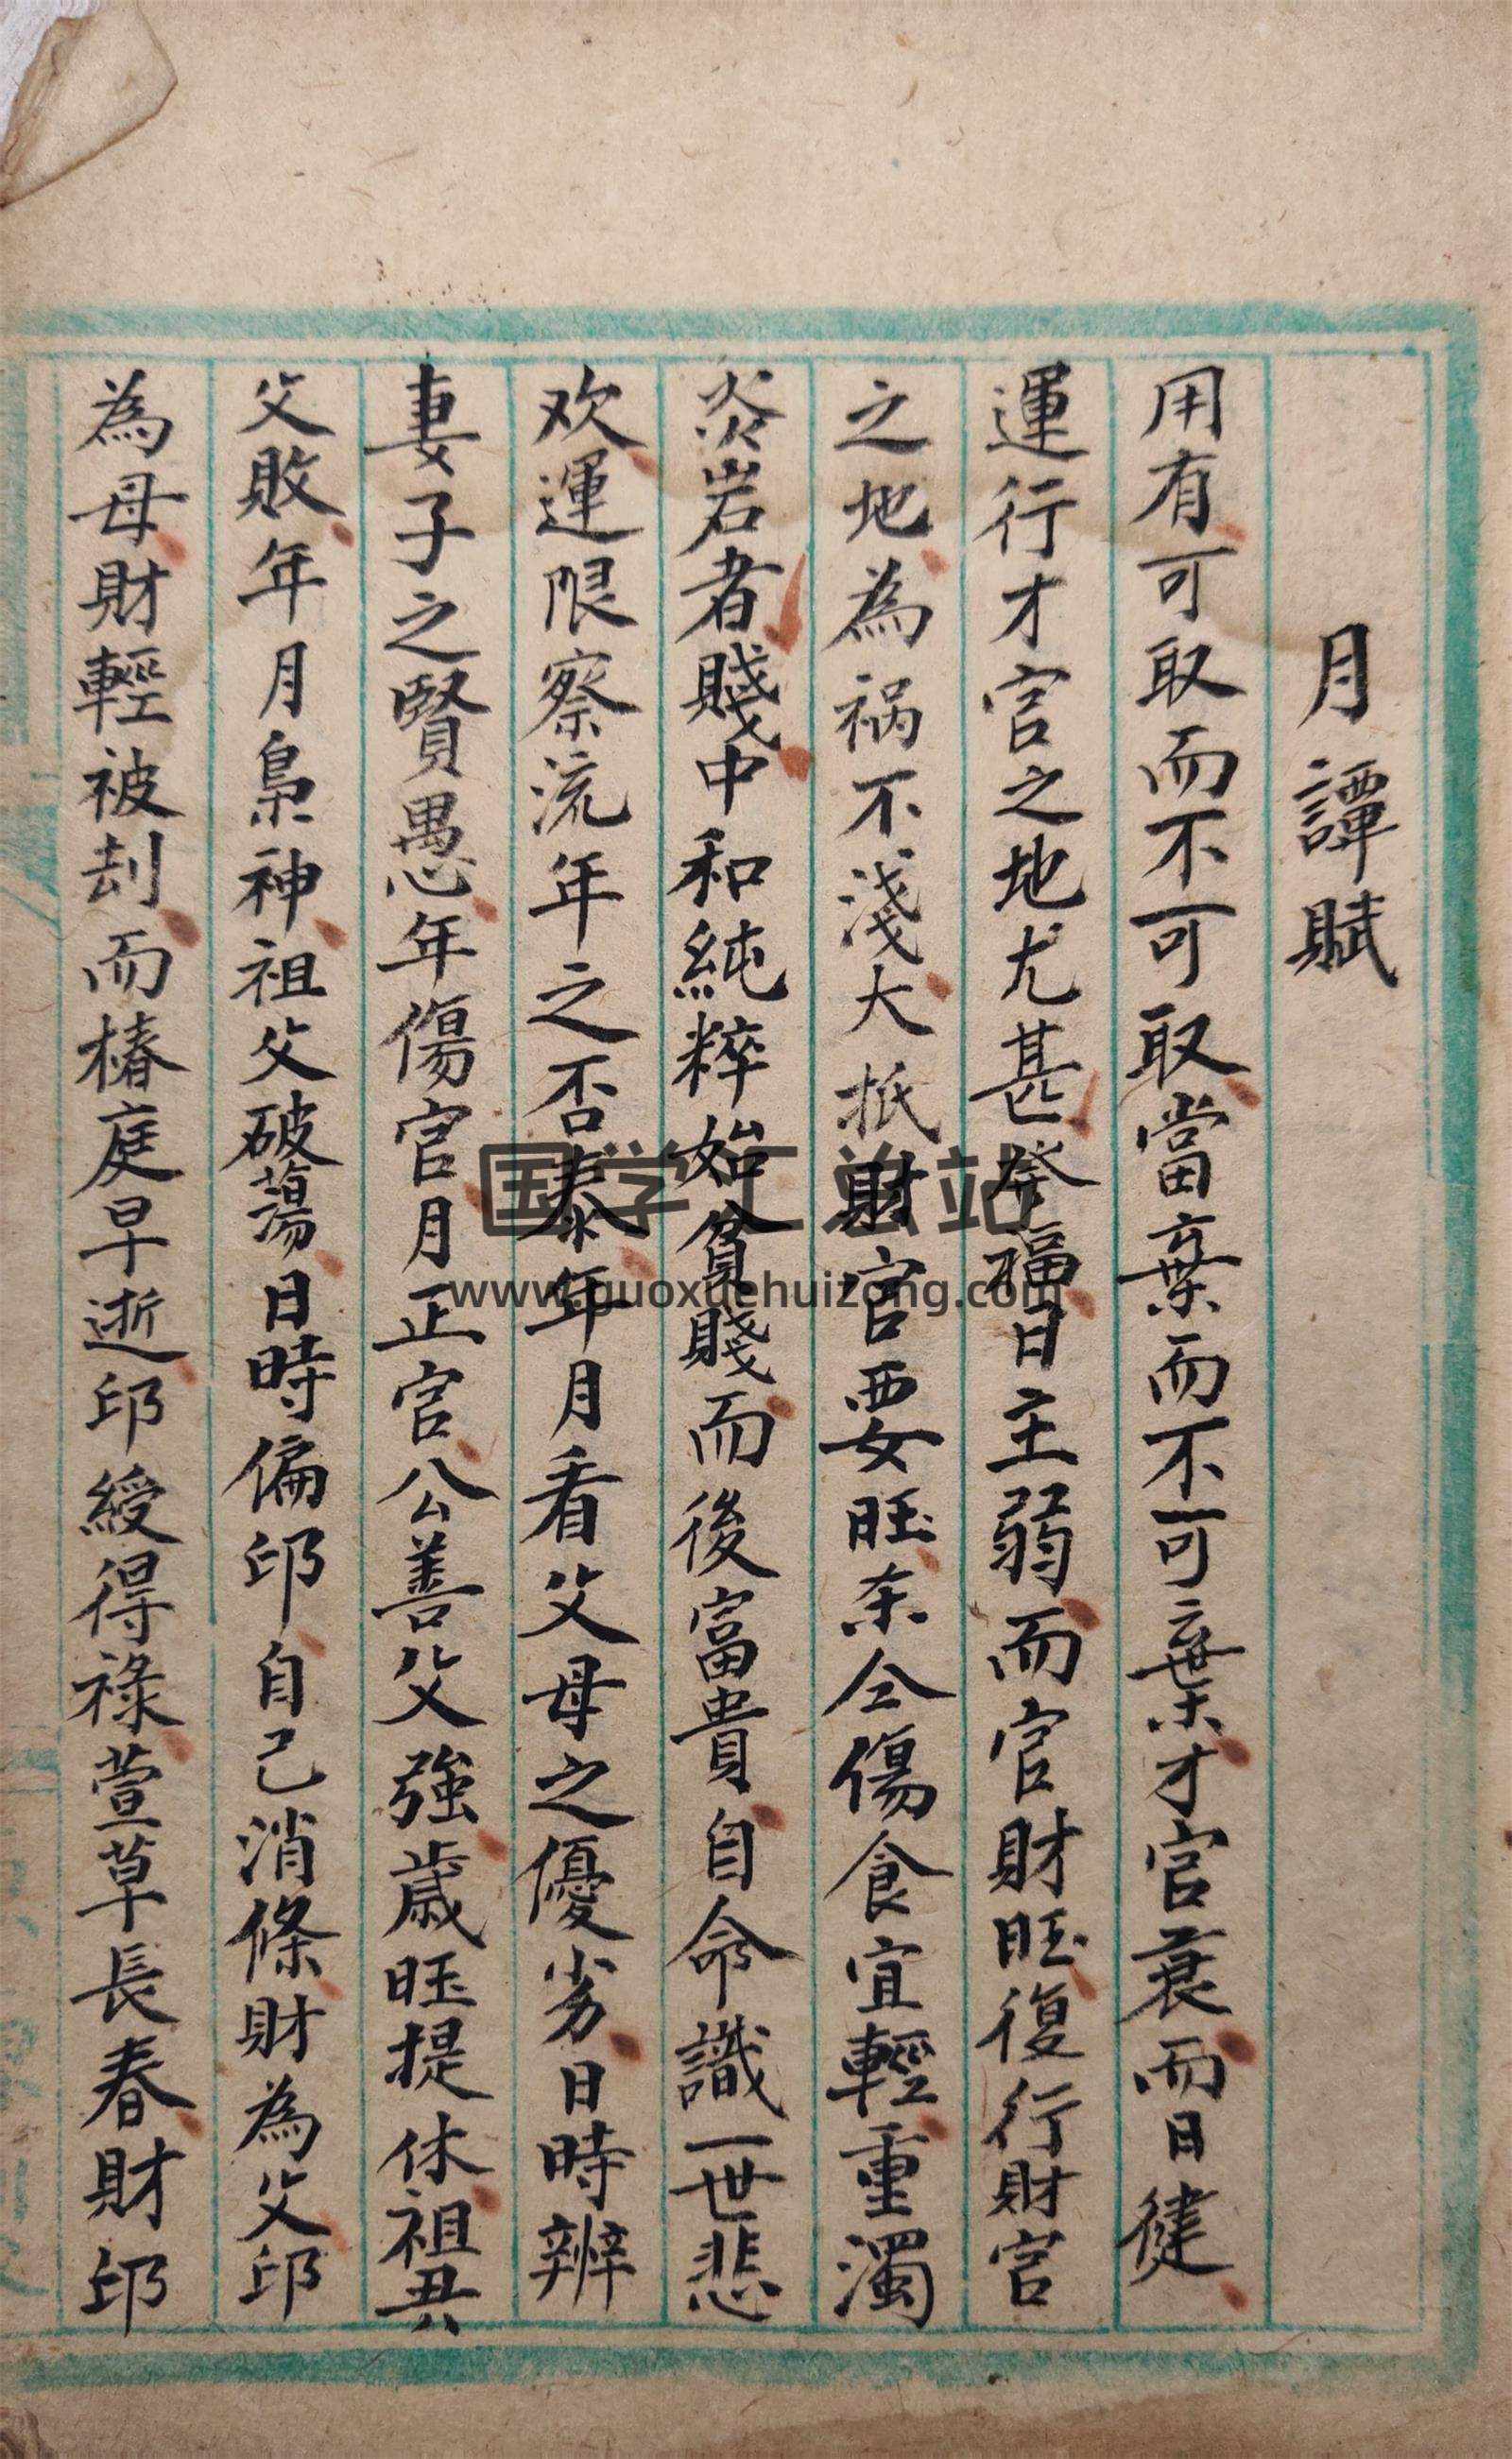 月譚賦
用有可取而不可取當棄而不可棄才官衰而日健
運行才官之地尤甚発福日主弱而官財旺復行財官
之地為祸不淺大抵財官要旺杀仝傷食宜輕重濁
炎岩者賤中和純粹始貧賤而後富貴自命識一世悲
欢運限察流年之否泰年月看父母之優劣日時辨
妻子之賢愚年傷官月正官公善父強歳旺提休祖興
父敗年月梟神祖父破蕩日時偏印自己消條財為父印
為母財輕被刦而椿庭早逝印綬得祿萱草長春財印
国学汇总站
www.guoxuehuizong.com